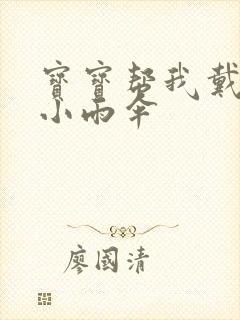 寶寶幫我戴
小雨傘
廖國清